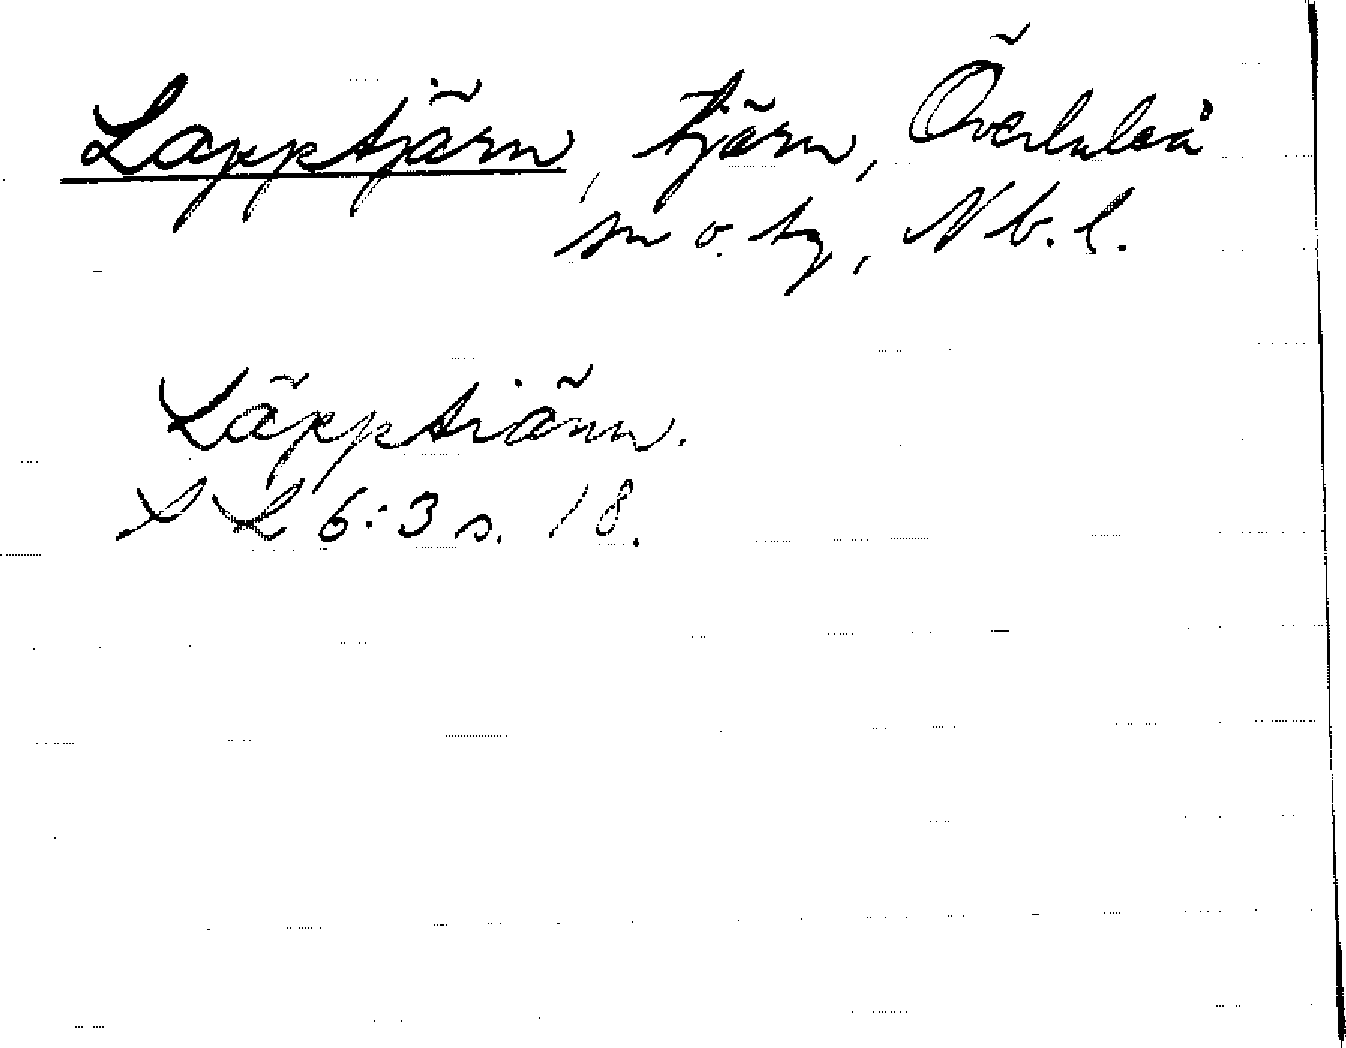 Lapptjärn, tjärn, Överluleå
sn o. tg, Nb. l.
Läpptiänn.
SL 6:3 s. 18.